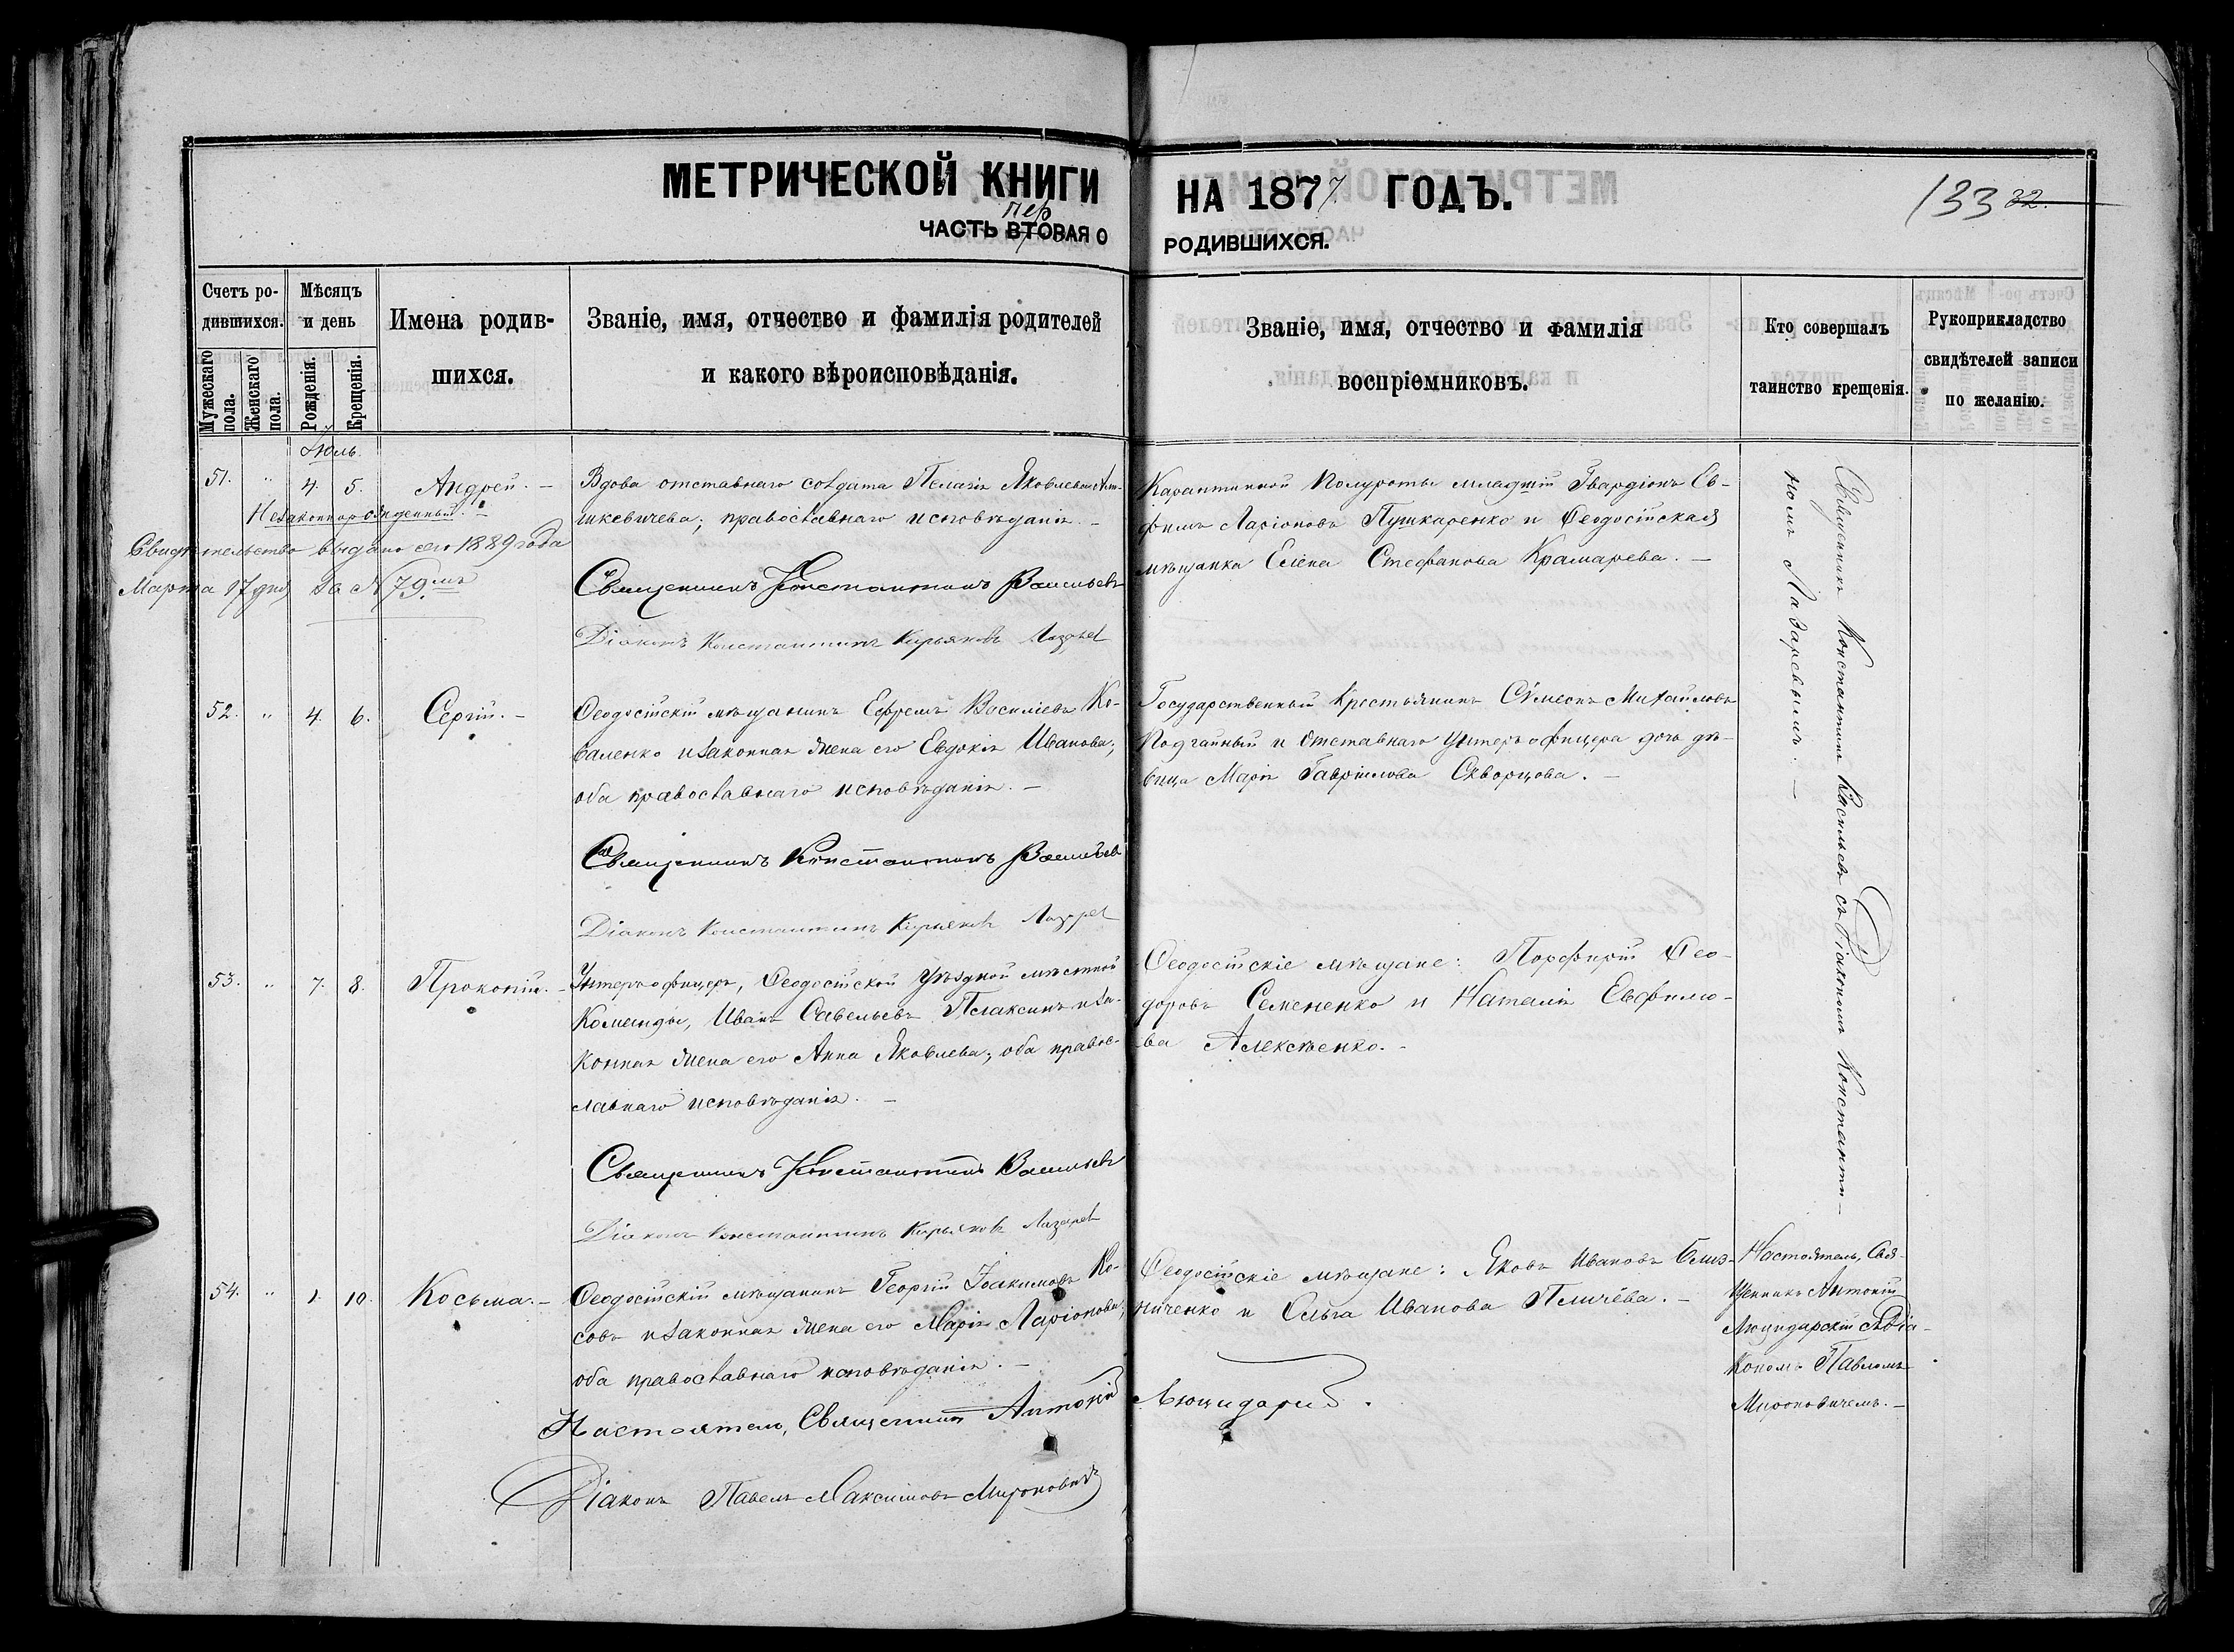 МЕТРИЧЕСКОЙ КНИГИ НА 1877 ГОДЪ.
133 32.
пер
ЧАСТЬ ВТОРАЯ О РОДИВШИХСЯ.
Счетъ ро-
дившихся.
Мужескаго пола.
Женскаго пола.
Мѣсяцъ
и день
Рожденія.
Крещенія.
Имена родив-
шихся.
Званіе, имя, отчество и фамилія родителей
и какого вѣроисповѣданія.
Званіе, имя, отчество и фамилія
воспріемниковъ.
Кто совершалъ
таинство крещенія.
Рукоприкладство
свидѣтелей записи
по желанію.
Іюль.
51. " 4. 5. Андрей. –
Незаконнорожденный.
Свидѣтельство выдано сего 1889 года
Марта 17 дня за № 79.мъ
Вдова отставнаго солдата Пелагія Яковлева
шкевичева; православнаго исповѣданія. –
Священникъ Константинъ Васильевъ
Діаконъ Константинъ Кирьяковъ Лазарев
Карантинной полуроты младшій Гвардіонъ Ев-
фимъ Ларіоновъ Пушкаренко и Ѳеодосійская
мѣщанка Елена Стефанова Крамарева. –
Священникъ Константинъ Васильевъ съ Діакономъ Константи-
номъ Лазаревымъ. –
52. " 4. 6. Сергій. –
Ѳеодосійскій мѣщанинъ Ефремъ Василіевъ Ко-
валенко и законная жена его Евдокія Иванова;
оба православнаго исповѣданія. –
Священникъ Константинъ Васильевъ
Діаконъ Константинъ Кирьяковъ Лазарев
Государственный крестьянинъ Сѵмеонъ Михайловъ
Подгайный и отставнаго унтеръ офицера дочь дѣ-
вица Марія Гавріилова Скворцова. –
53. " 7. 8. Прокопій. –
Унтеръ офицеръ, Ѳеодосійской уѣздной мѣстной
команды, Иванъ Савельевъ Плаксинъ и за-
конная жена его Анна Яковлева; оба право-
славнаго исповѣданія. –
Священникъ Константинъ Васильевъ
Діаконъ Константинъ Кирьяковъ Лазарев
Ѳеодосійскіе мѣщане: Порфирій Ѳео-
доровъ Семененко и Наталія Евфимо-
ва Алексѣенко. –
54. " 1. 10. Косьма. –
Ѳеодосійскій мѣщанинъ Георгій Іоакимовъ Ко-
совъ и законная жена его Марія Ларіонова;
оба православнаго исповѣданія. –
Ѳеодосійскіе мѣщане: Яковъ Ивановъ Близ-
ниченко и Ольга Иванова Пличёва. –
Настоятель, Свя-
щенникъ Антоній
Люцидарскій съ Діа-
кономъ Павломъ
Мироновичемъ. –
Настоятель, Священникъ Антоній
Діаконъ Павелъ Максимовъ Мироновичъ